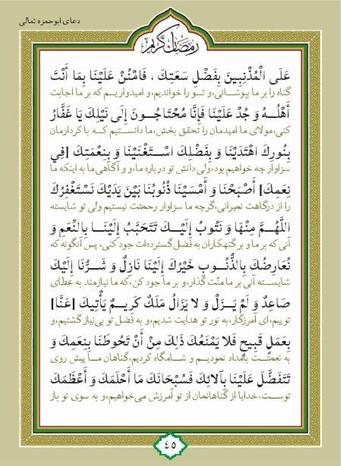 دعای ابوحمزه ثمالی
رمضان کریم
عَلَى الْمُذْنِبِينَ بِفَضْلِ سَعَتِكَ ، فَامْنُنْ عَلَيْنَا بِمَا أَنْتَ
گناه را بر ما بپوشانی،و تو را خواندیم،و امیدواریم که بر ما اجابت
أَهْلُهُ وَ جُدْ عَلَيْنَا فَإِنَّا مُحْتَاجُونَ إِلَى نَيْلِكَ يَا غَفَّارُ
کنی،مولای ما امیدمان را تحقق بخش،ما دانستیم که با کردارمان
بِنُورِكَ اهْتَدَيْنَا وَ بِفَضْلِكَ اسْتَغْنَيْنَا وَ بِنِعْمَتِكَ [فِي
سزاوار چه خواهیم بود،ولی دانش تو درباره ما،و آگاهی ما به اینکه ما
نِعَمِكَ] أَصْبَحْنَا وَ أَمْسَيْنَا ذُنُوبُنَا بَيْنَ يَدَيْكَ نَسْتَغْفِرُكَ
را از درگاهت نمیرانی،گرچه ما سزاوار رحمتت نیستیم ولی تو شایسته
اللَّهُمَّ مِنْهَا وَ نَتُوبُ إِلَيْكَ تَتَحَبَّبُ إِلَيْنَا بِالنِّعَمِ وَ
آنی که بر ما و بر گنهکاران به فضل گسترده‌ات جود کنی، پس آنگونه که
نُعَارِضُكَ بِالذُّنُوبِ خَيْرُكَ إِلَيْنَا نَازِلٌ وَ شَرُّنَا إِلَيْكَ
شایسته آنی بر ما منّت گذار،و بر ما جود کن،که ما نیازمند به عطای
صَاعِدٌ وَ لَمْ يَزَلْ وَ لا يَزَالُ مَلَكٌ كَرِيمٌ يَأْتِيكَ [عَنَّا]
توییم،ای آمرزگار،به نور تو هدایت شدیم،و به فضل تو بی‌نیاز گشتیم،و
بِعَمَلٍ قَبِيحٍ فَلا يَمْنَعُكَ ذَلِكَ مِنْ أَنْ تَحُوطَنَا بِنِعَمِكَ وَ
به نعمتت بامداد نمودیم و شامگاه کردیم،گناهان ما پیش روی
تَتَفَضَّلَ عَلَيْنَا بِآلائِكَ فَسُبْحَانَكَ مَا أَحْلَمَكَ وَ أَعْظَمَكَ
توست، خدایا از گناهانمان از تو آمرزش می‌خواهیم،و به سوی تو باز
٤٥